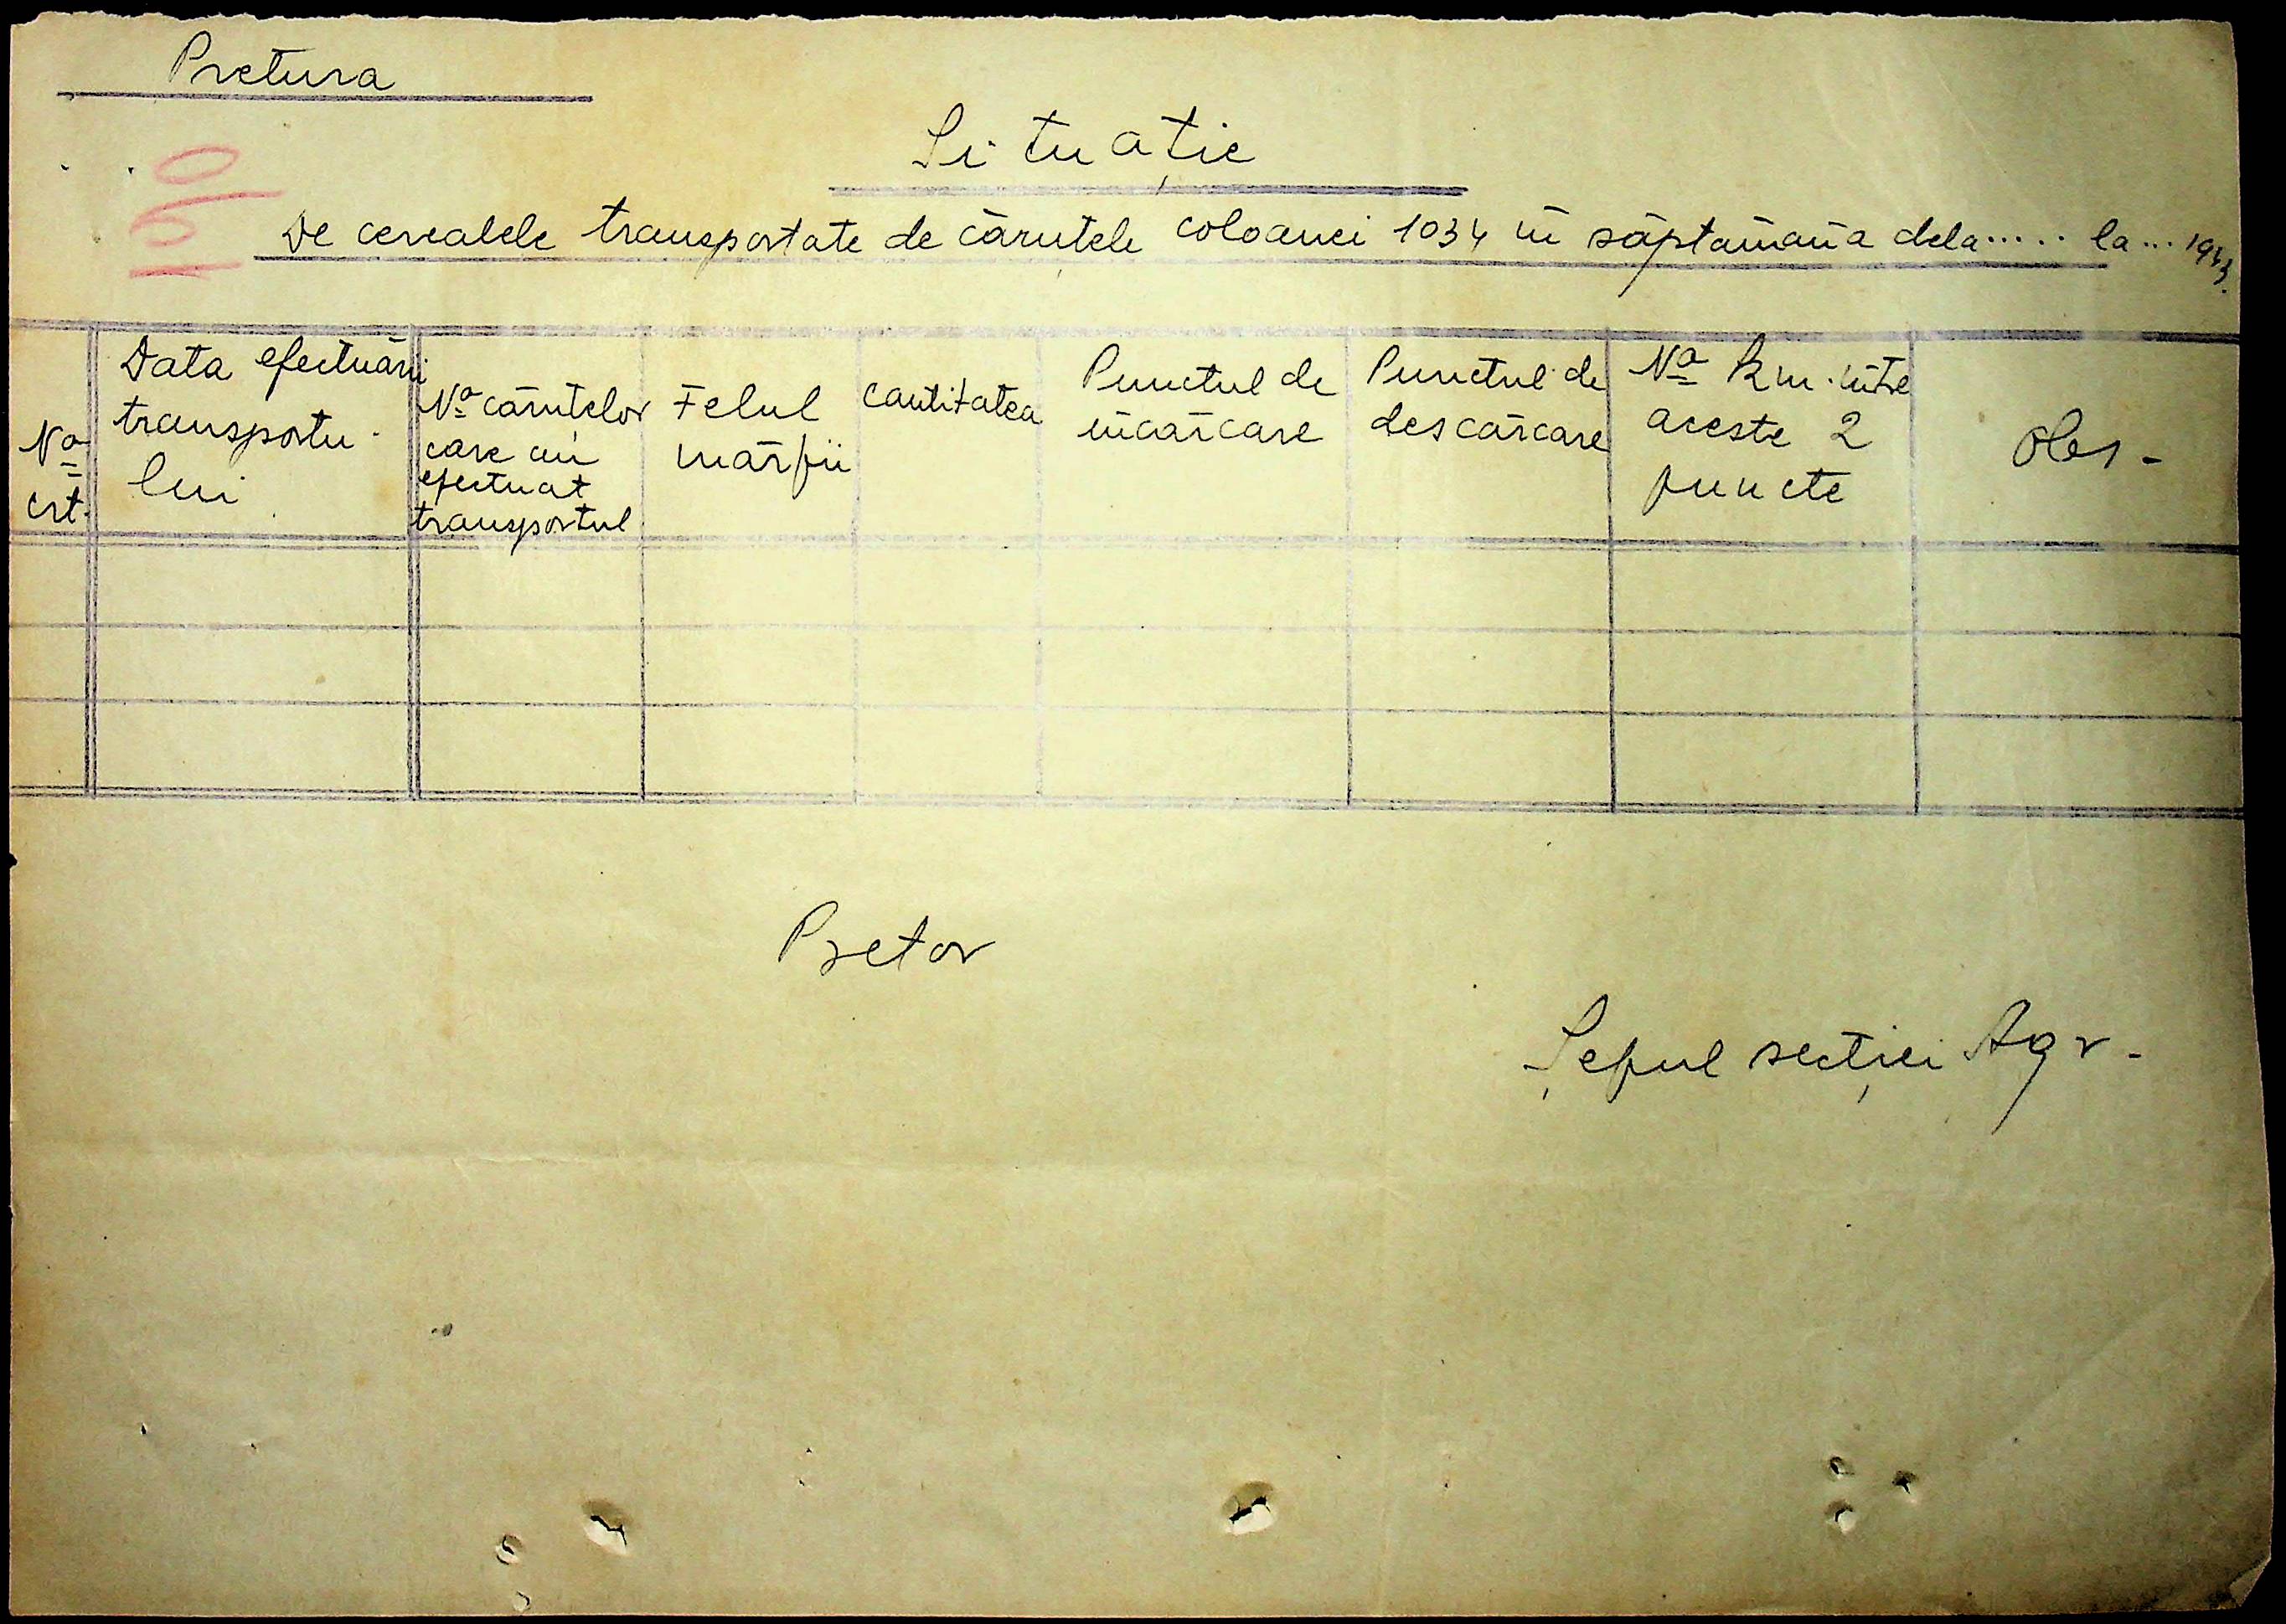 Pretura
Situație
150
De cerealele transportate de cărutele coloanei 1034 în săptămâna dela..... la... 1943.
No crt.
Data efectuării
transportu-
lui
No cărutelor
care au
efectuat
transportul
Felul
mărfii
Cantitatea
Punctul de
încărcare
Punctul de
descărcare
No Km. între
aceste 2
puncte
Obs-
Pretor
Șeful secției Agr-